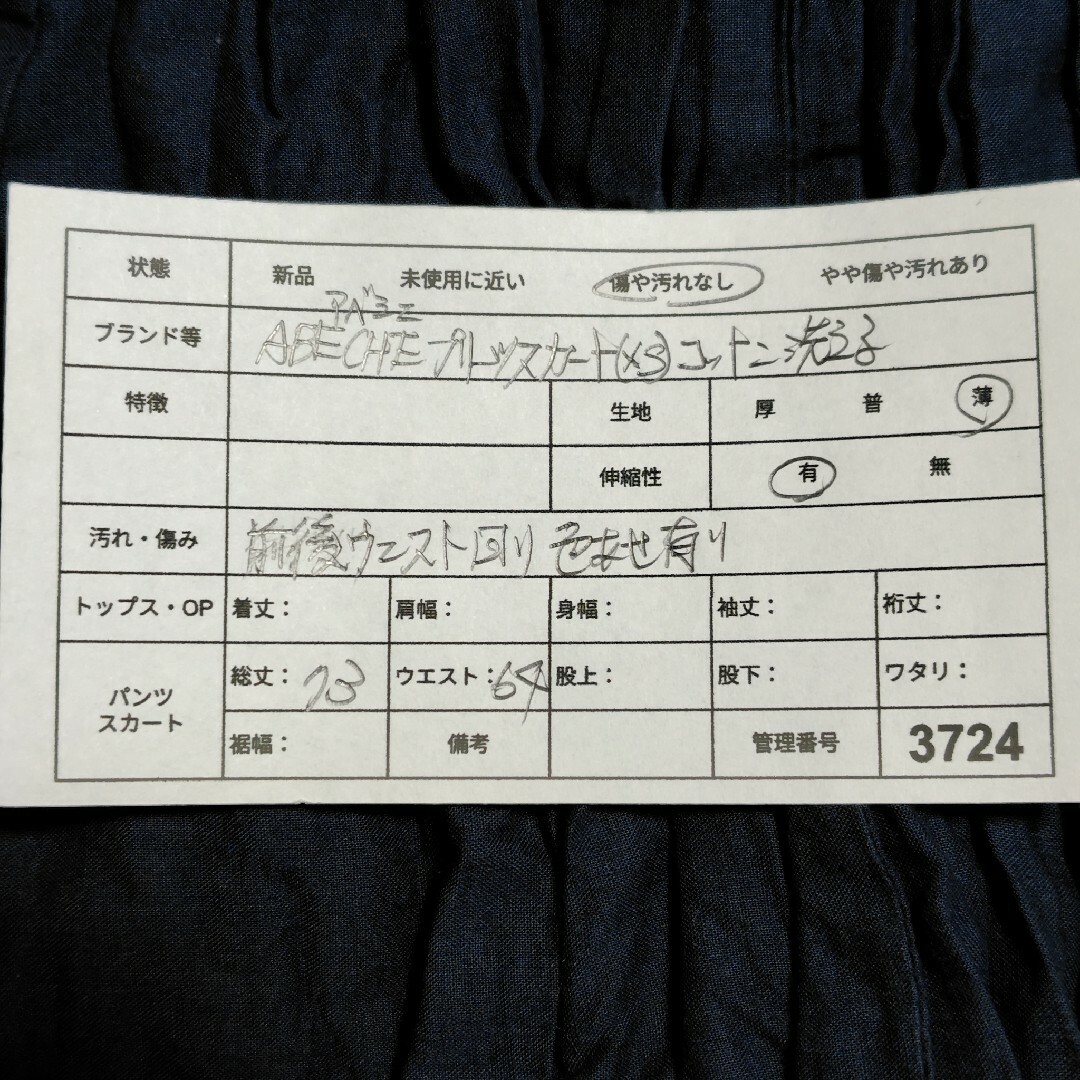 状態 新品 未使用に近い 傷や汚れなし やや傷や汚れあり
ブランド等 ABECHE プリーツスカート(XS) コットン 洗える
特徴 生地 厚 普 薄
伸縮性 有 無
汚れ・傷み 前後ウエスト回り 色あせ有り
トップス・OP 着丈: 肩幅: 身幅: 袖丈: 裄丈:
パンツ スカート 総丈: 73 ウエスト: 64 股上: 股下: ワタリ:
裾幅: 備考 管理番号 3724